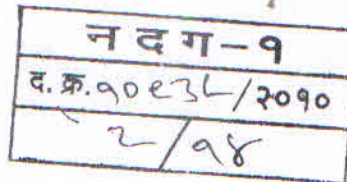 न द ग - १
द. क्र. १०९३८/२०१०
२/१४